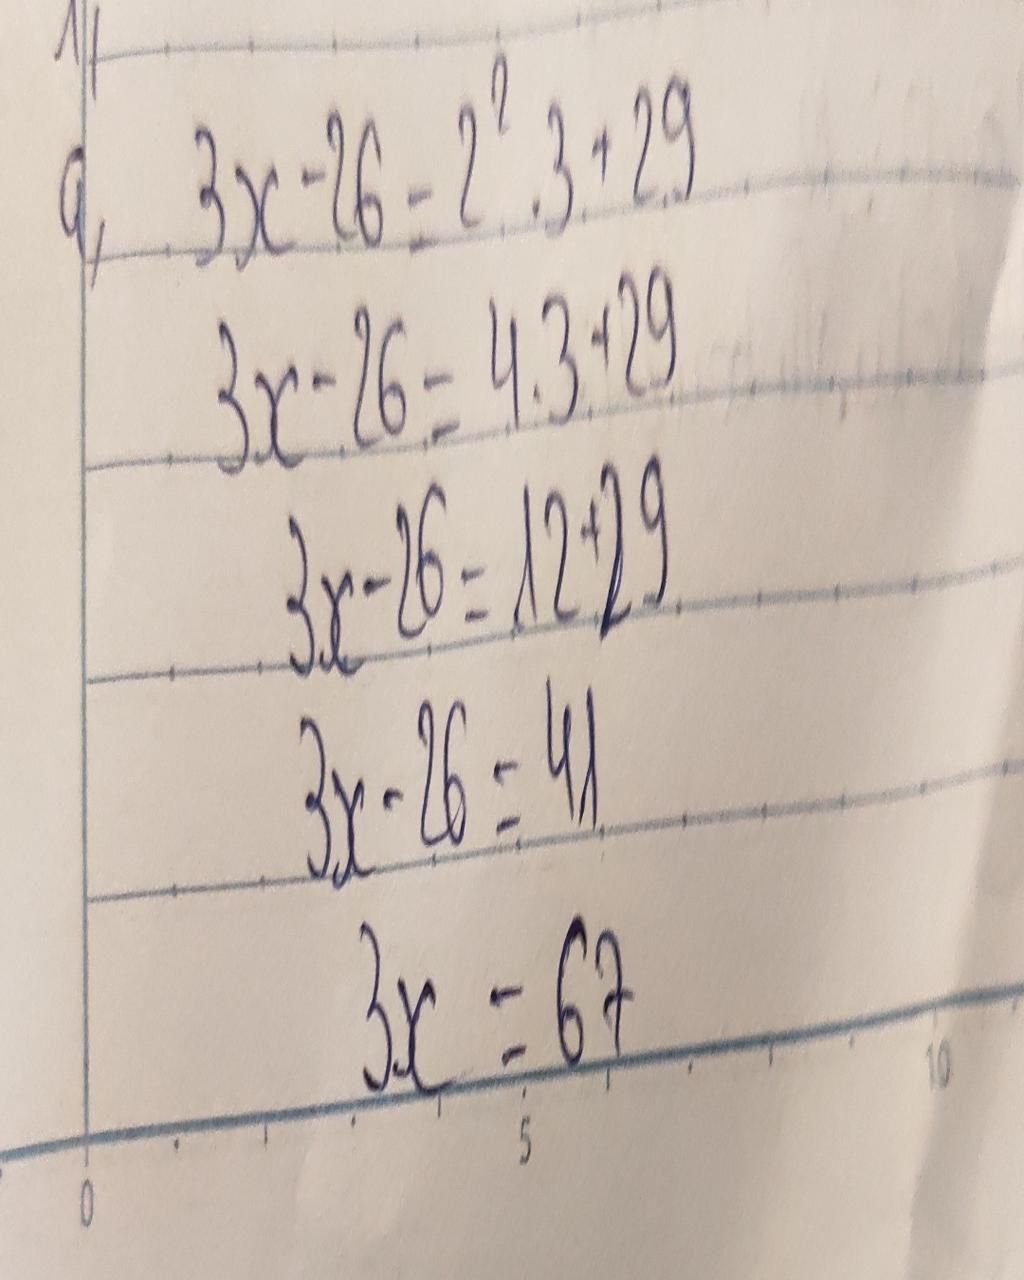 1,
a, 3x - 26 = 2² . 3 + 29
3x - 26 = 4 . 3 + 29
3x - 26 = 12 + 29
3x - 26 = 41
3x = 67
0 5 10